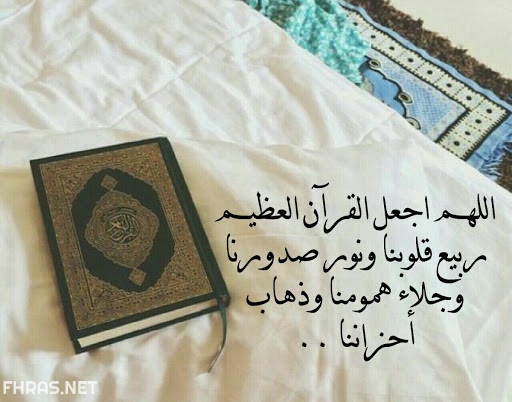 اللهم اجعل القرآن العظيم
ربيع قلوبنا ونور صدورنا
وجلاء همومنا وذهاب
أحزاننا . .
FHRAS.NET